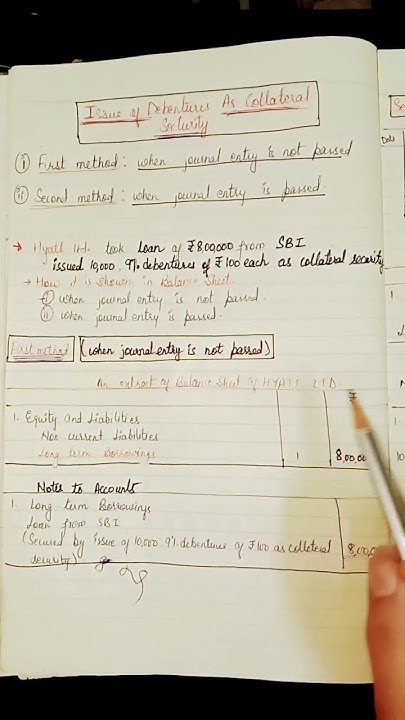 Issue of Debentures As Collateral
Security
(i) First method : when journal entry is not passed
(ii) Second method : when journal entry is passed.
→ Hyatt ltd. took loan of ₹8,00,000 from SBI
issued 10,000, 9% debentures of ₹100 each as collateral security
→ How it is shown in Balance Sheet.
(i) when journal entry is not passed.
(ii) when journal entry is passed.
First method (when journal entry is not passed)
An extract of Balance Sheet of HYATT LTD
₹
1. Equity and Liabilities
Non current Liabilities
Long term Borrowings 1 8,00,00
Notes to Accounts
1. Long term Borrowings
Loan from SBI
(Secured by issue of 10,000. 9% debentures of ₹100 as collateral 8,00,0
security)
Date